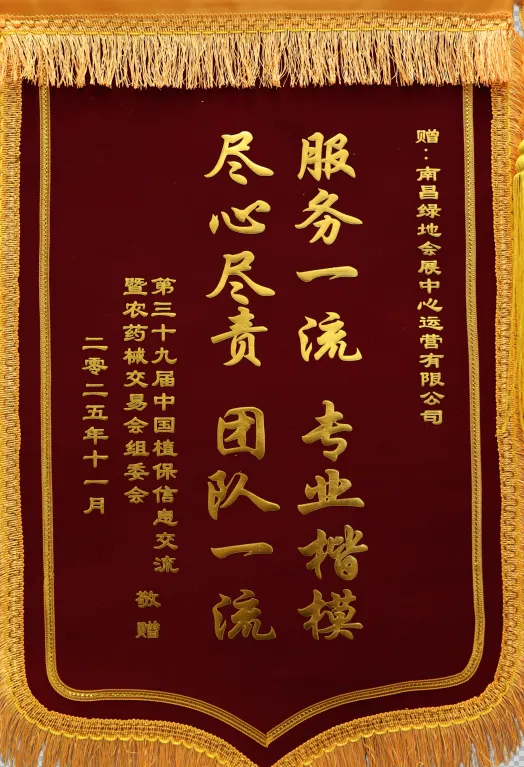 赠：南昌绿地会展中心运营有限公司
服务一流 专业楷模
尽心尽责 团队一流
第三十九届中国植保信息交流
暨农药械交易会组委会
敬赠
二零二五年十一月